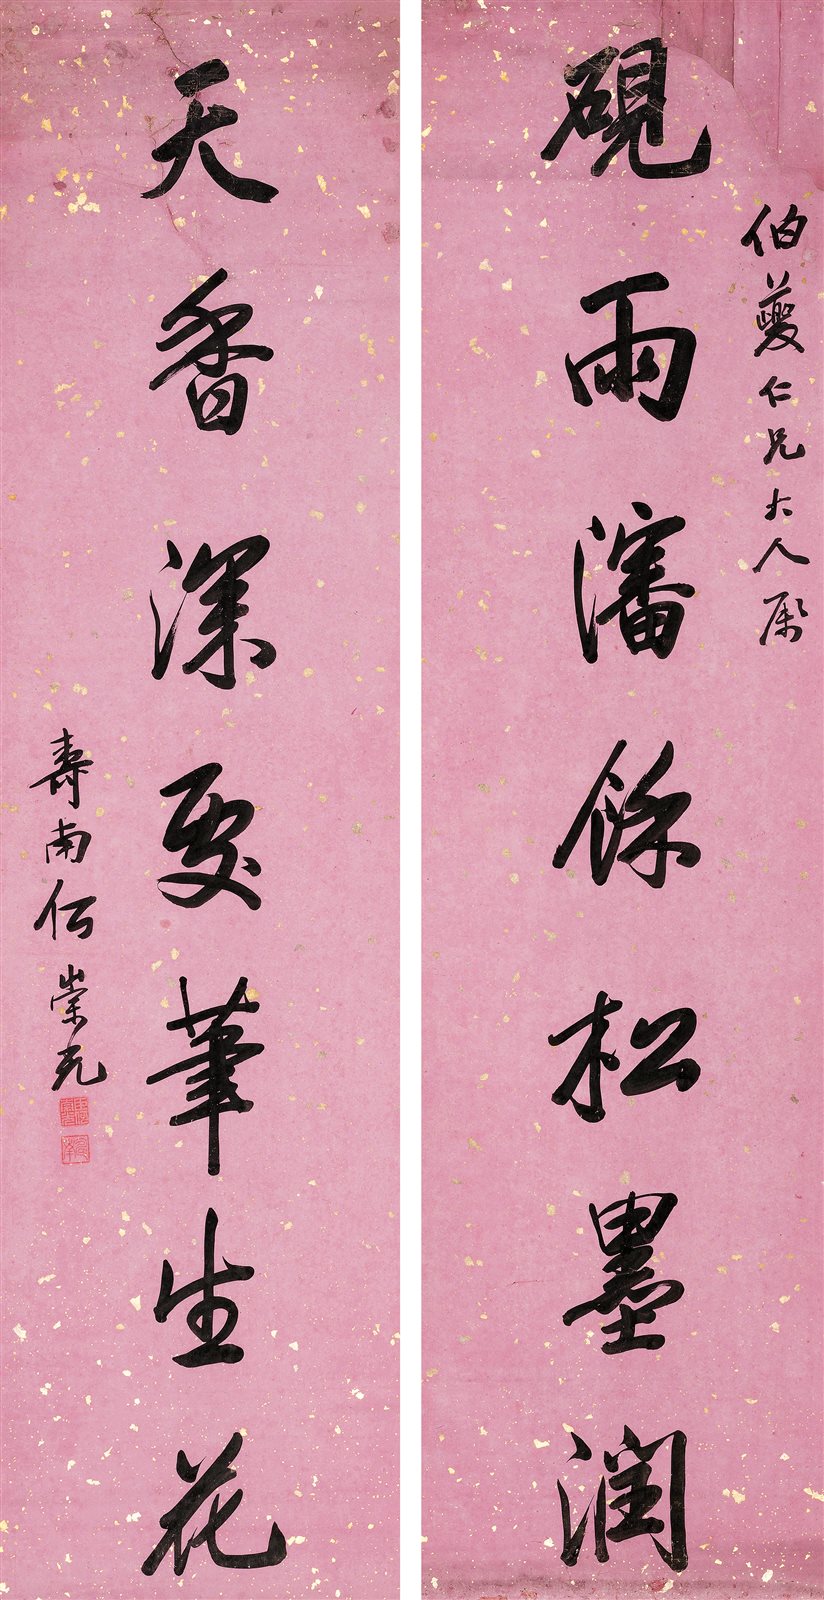 硯雨瀋餘松墨潤
伯夔仁兄大人屬
天香深處筆生花
壽南何崇光